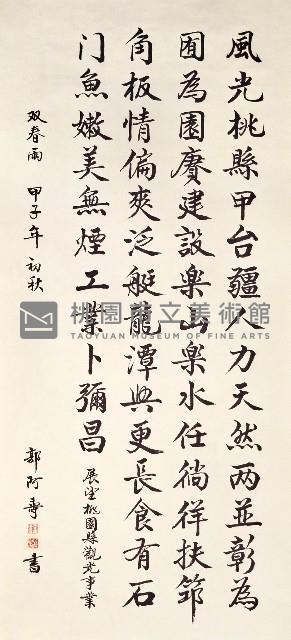 風光桃縣甲台疆人力天然两並彰為
囿為園賡建設楽山楽水任徜徉扶筇
角板情偏爽泛艇龍潭興更長食有石
门魚嫩美無煙工業卜彌昌
展望桃園縣觀光事業
双春雨 甲子年初秋 郭阿壽 書
桃園市立美術館
TAOYUAN MUSEUM OF FINE ARTS